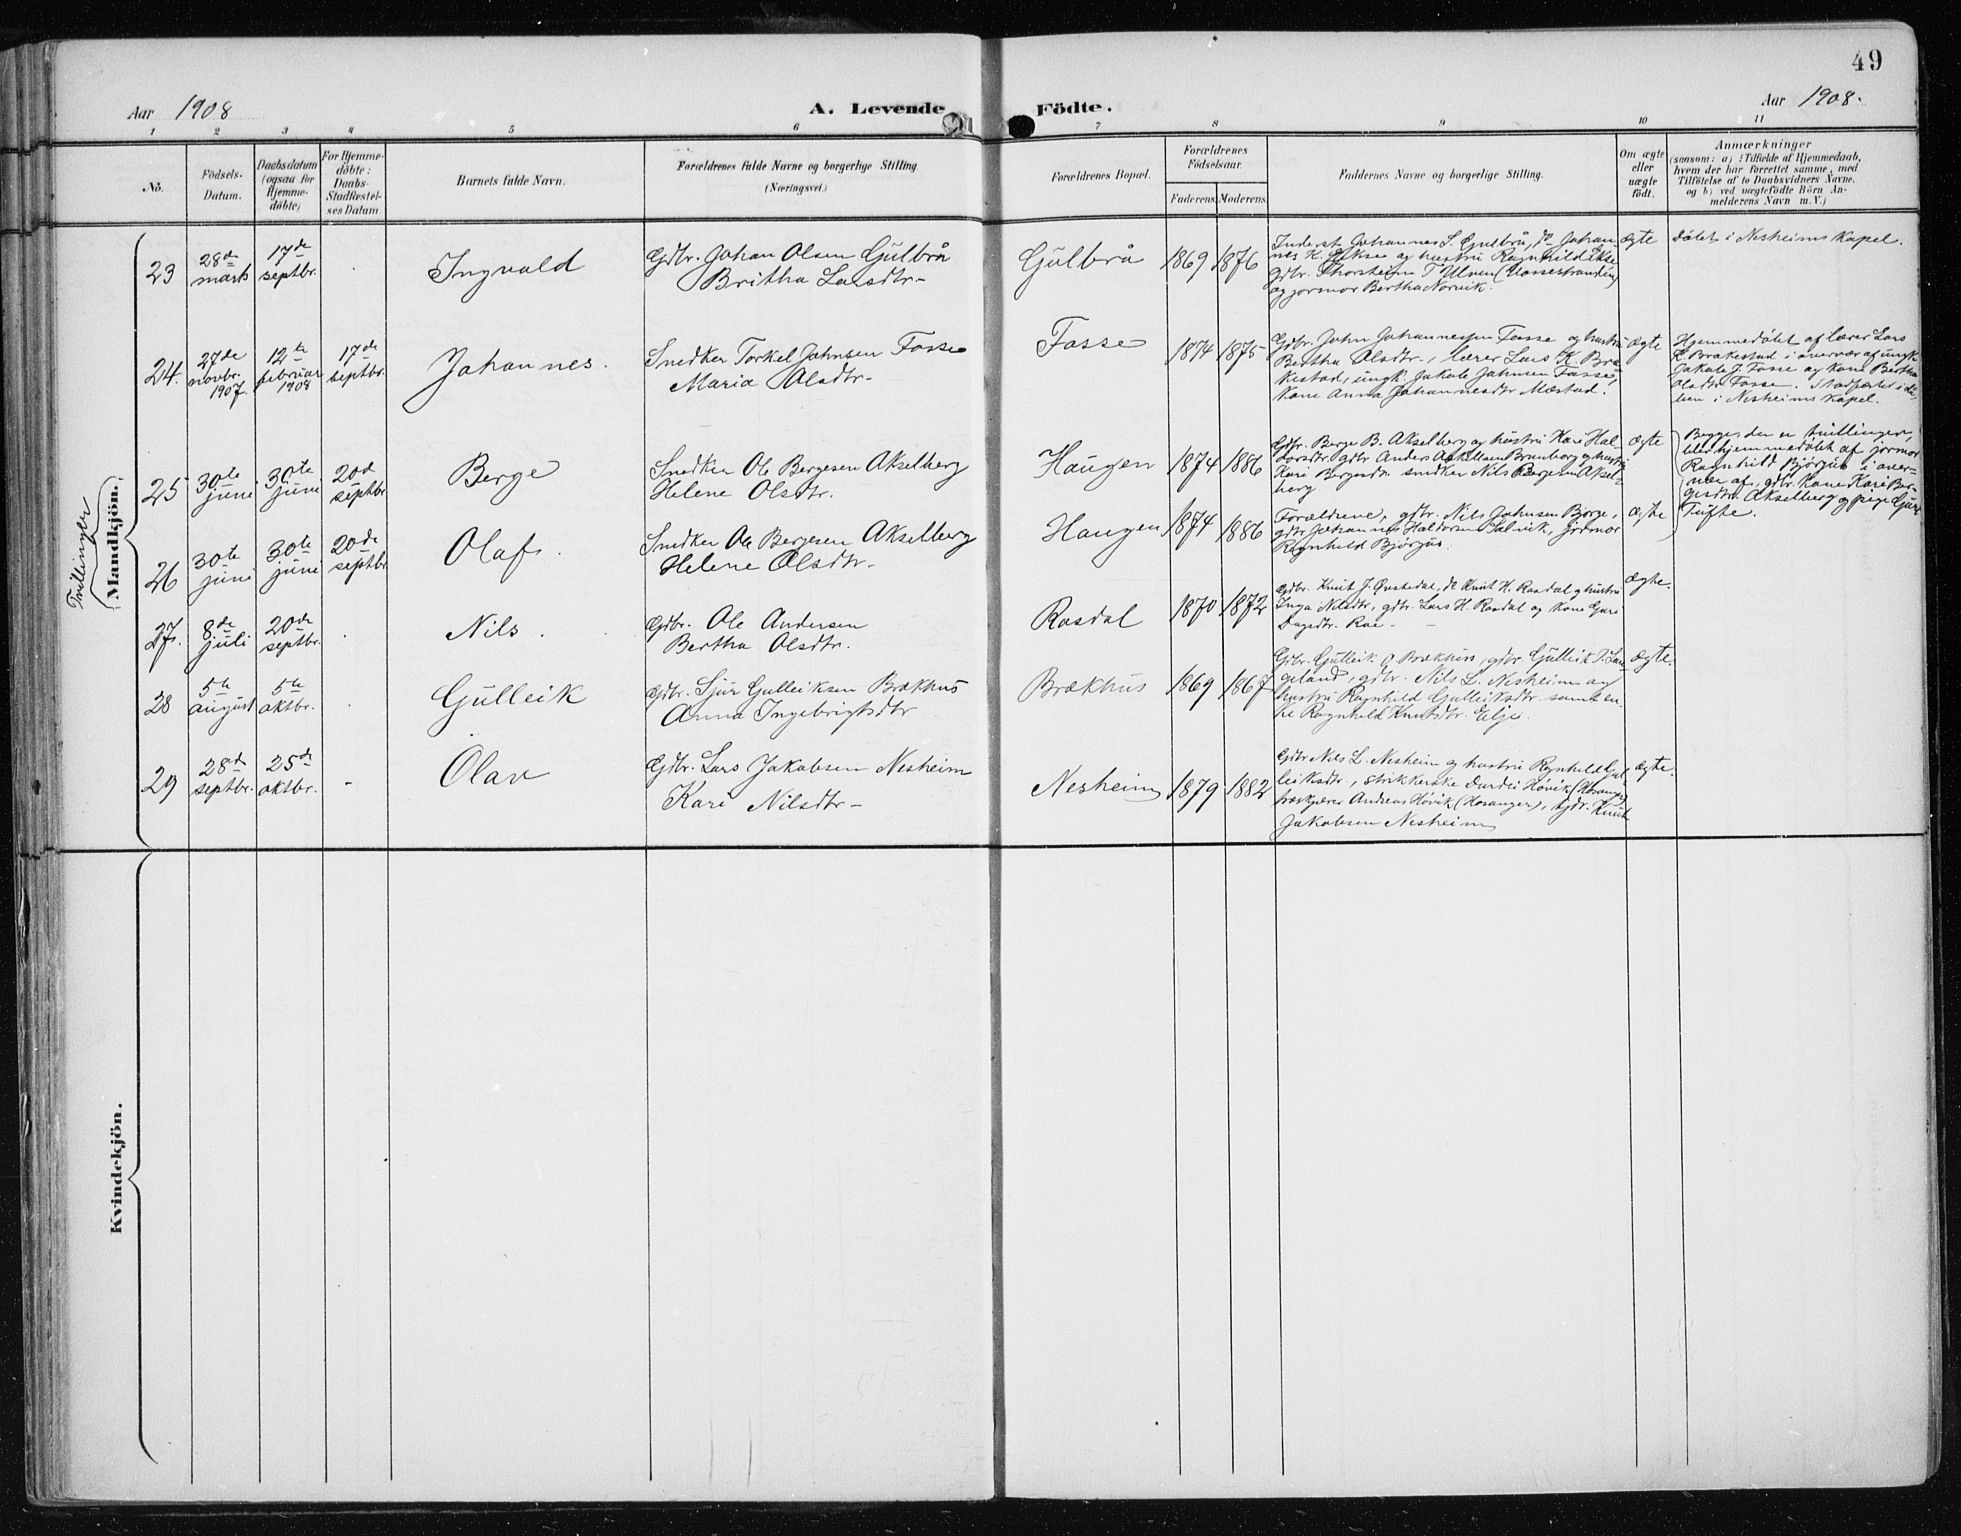 49
Aar 1908
A. Levende
Födte.
Aar 1908.
1 2 3 4 5 6 7 8 9 10 11
No.
Födsels-
Datum.
Daabsdatum
(ogsaa for
Hjemme-
döbte)
For Hjemme-
döbte:
Daabs-
Stadfæstel-
ses Datum
Barnets fulde Navn.
Forældrenes fulde Navne og borgerlige Stilling.
(Næringsvei.)
Forældrenes Bopæl.
Forældrenes
Födselsaar.
Faderens. Moderens.
Faddernes Navne og borgerlige Stilling.
Om ægte
eller
uægte
födt.
Anmærkninger
(saasom: a) i Tilfælde af Hjemmedaab,
hvem der har forrettet samme, med
Tilföielse af to Daabsvidners Navne.
og b) ved uægtefödte Börn An-
melderens Navn m. V.)
Mandkjön.
23
28de
marts
17de
septbr.
Ingvald
Gdbr. Johan Olsen Gulbrå
Britha Larsdtr.
Gulbrå
1869 1876
Inderst Johannes S. Gulbrå, do Johan-
nes H. og hustru Ragnhild
gdbr. Thorsheim T. Ulven (Vossestranden)
og jormor Bertha Norvik.
ægte
Döbt i Nesheims kapel.
24.
27de
novbr.
1907.
12te
februar
1908
17de
septbr.
Johannes.
Snedker Torkel Johnsen Fosse
Maria Olsdtr.
Fosse
1874 1875
Gdbr. John Johannessen Fosse og hustru
Bertha Olsdtr., Lærer Lars K. Bra-
kestad, ungk. Jakob Johnsen Fosse,
kone Anna Johannesdtr Mæstad.
ægte
Hjemmedöbt af lærer Lars
K. Brakestad i overvær af ungk.
Jakob J. Fosse og kone Bertha
Olsdtr Fosse. Stadfæstet i då-
ben i Nesheims kapel.
Tvillinger
25
30te
juni
30te
juni
20de
septbr
Berge
Snedker Ole Bergesen Akselberg
Helene Olsdtr.
Haugen
1874 1886
Gdbr. Berge B. Akselberg og hustru Kari Hal-
dorsdtr. gdbr Anders Brunborg og hustru
Kari Bergesdtr. snedker Nils Bergesen Aksel-
berg
ægte
Begge, der er tvillinger,
blev hjemmedöbt af jormor
Ragnhild Björgås i over-
vær af gdbr. kone Kari Ber-
gesdtr. Akselberg og pige Guri
Tufte.
26
30te
juni
30te
juni
20de
septbr
Olaf.
Snedker Ole Bergesen Akselberg
Helene Olsdtr.
Haugen
1874 1886
Forældrene, gdbr. Nils Johnsen Börge,
gdbr Johannes Haldorsen, jormor
Ragnhild Björgås.
ægte
27.
8de
juli
20de
septbr.
Nils.
Gdbr. Ole Andersen
Bertha Olsdtr.
Rasdal
1870 1872
Gdbr. Knut J. Övstedal, do Knut H. Rasdal og hustru
Inga Nilsdtr, gdbr. Lars H. Rasdal og kone Guri
Dagsdtr. Rae
ægte.
28
5te
august
5te
oktbr.
Gulleik
Gdbr. Sjur Gulleiksen Brækhus
Anna Ingebrigtsdtr
Brækhus
1869 1867
Gdbr. Gulleik O. Brækhus, gdbr. Gulleik
gdbr. Nils L. Nesheim og
hustru Ragnhild Gulleiksdtr. samt en-
ke Ragnhild Knutsdtr. Elje.
ægte.
29
28de
septbr.
25de
oktbr.
Olav
Gdbr. Lars Jakobsen Nesheim
Kari Nilsdtr
Nesheim
1879 1882
Gdbr Nils L. Nesheim og hustru Ragnhild Gul-
leiksdtr., strikkerske Dordei Hövik (Hosanger)
Andreas Hövik (Hosanger), Gdbr. Knut
Jakobsen Nesheim
ægte.
Kvindekjön.